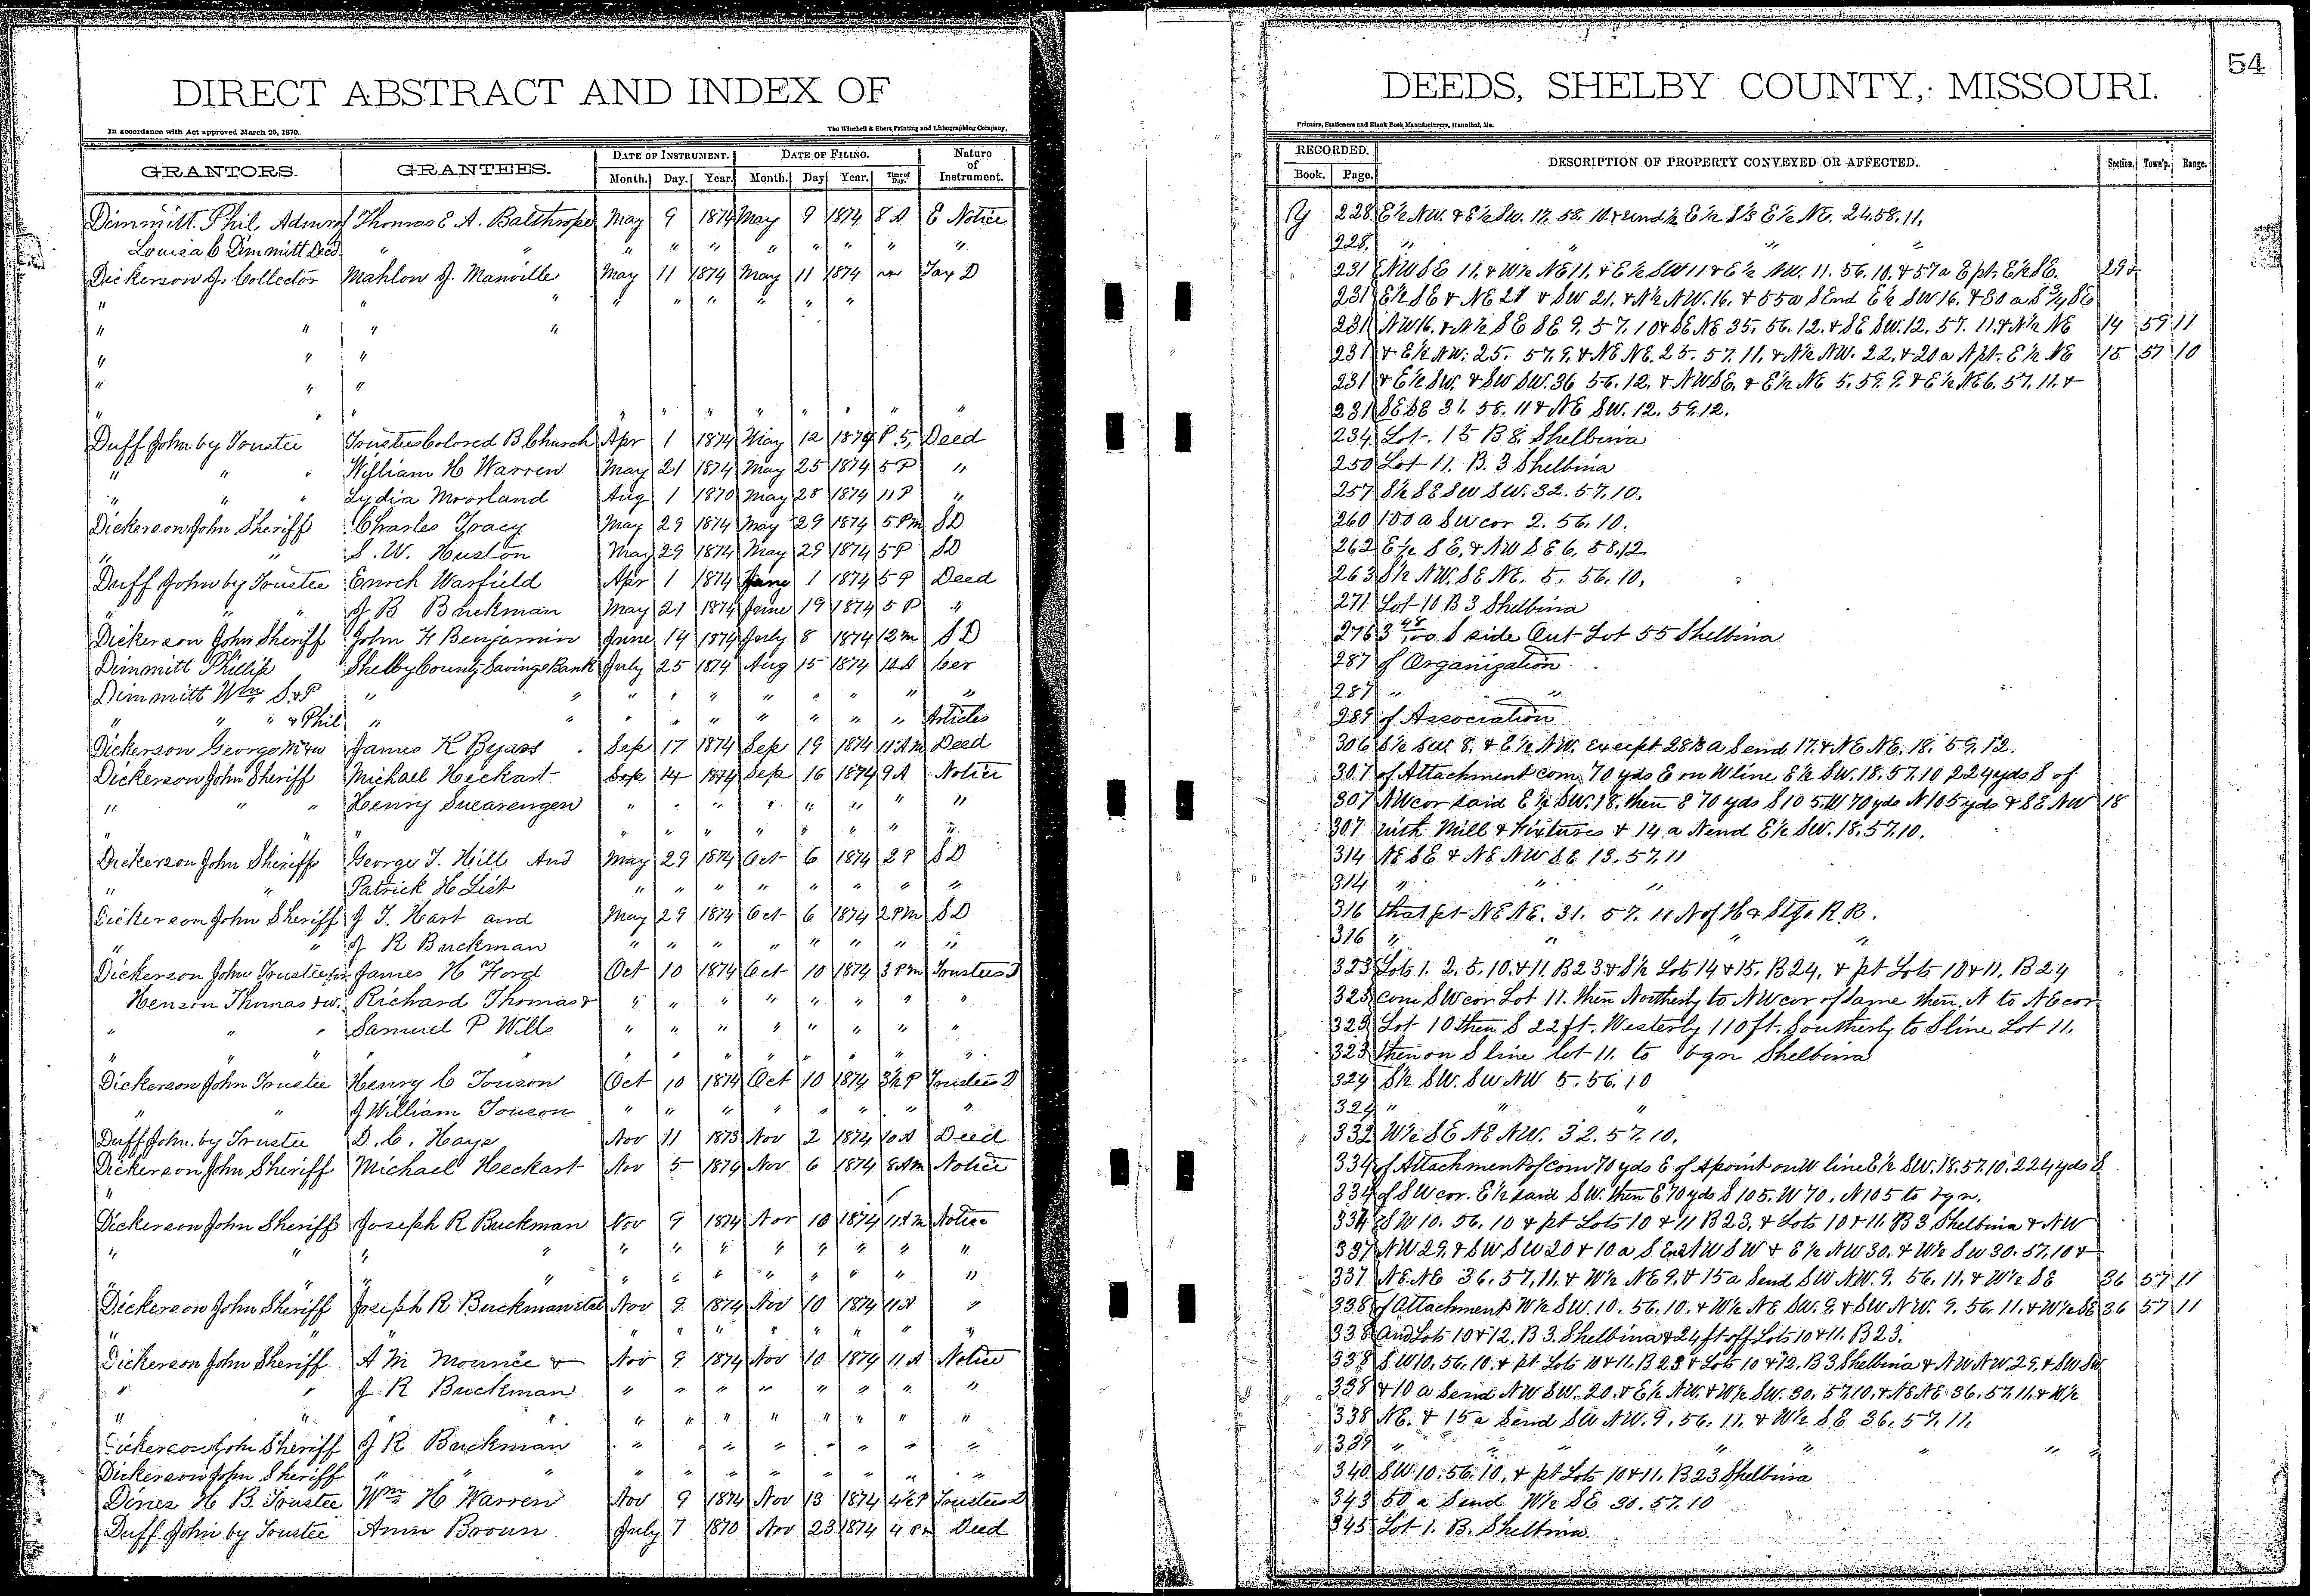 54
DIRECT ABSTRACT AND INDEX OF
DEEDS, SHELBY COUNTY, MISSOURI.
In accordance with Act approved March 25, 1870.
The Winchell & Ebert Printing and Lithographing Company,
Printers, Stationers and Blank Book Manufacturers, Hannibal, Mo.
GRANTORS. GRANTEES. DATE OF INSTRUMENT. DATE OF FILING. Nature of Instrument.
Month. Day. Year. Month. Day Year. Time of Day.
RECORDED. DESCRIPTION OF PROPERTY CONVEYED OR AFFECTED. Section. Town'p. Range.
Book. Page.
Dimmitt Phil Admr of Thomas E A. Balthrope May 9 1874 May 9 1874 8 A E Notice Y 228 E½ NW. & E½ SW. 17. 58. 10. & und ½ E½ E½ NE. 24. 58. 11.
Louisa C Dimmitt Decd. " " " " " " " " " 228 " " " "
Dickerson J. Collector Mahlon J. Manville May 11 1874 May 11 1874 Tax D 231 NW SE 11. & W½ NE 11. & E½ SW 11 & E½ NW. 11. 56. 10. & 57 a E pt. E½ SE. 29 &
" " " " " " " " " 231 E½ SE & NE 21 & SW 21. & N½ NW. 16. & 55 a S End E½ SW 16. & 30 a S ¾ SE
" " " " 231 NW 16. & N½ SE SE 9. 57. 10 & SE NE 35. 56. 12. & SE SW. 12. 57. 11. & N½ NE 14 59 11
" " " 231 & E½ NW. 25. 57. 9. & NE NE. 25. 57. 11. & N½ NW. 22. & 20 a N pt. E½ NE 15 57 10
" " " 231 & E½ SW. & SW SW. 36 56. 12. & NW SE. & E½ NE 5. 59. 9. & E½ NE 6. 57. 11. &
" " " " " " " " " " 231 SE SE 31. 58. 11 & NE SW. 12. 59. 12.
Duff John by Trustee Trustees Colored B Church Apr 1 1874 May 12 1874 P. 5, Deed 234 Lot. 15 B 8. Shelbina
" " " William H Warren May 21 1874 May 25 1874 5 P " 250 Lot 11. B. 3 Shelbina
" " " Lydia Moorland Aug 1 1870 May 28 1874 11 P " 257 S½ SE SW SW. 32. 57. 10.
Dickerson John Sheriff Charles Tracy May 29 1874 May 29 1874 5 Pm SD 260 100 a SW cor 2. 56. 10.
" " S. W. Huston May 29 1874 May 29 1874 5 P SD 262 E½ SE. & NW SE 6. 58. 12.
Duff John by Trustee Enoch Warfield Apr 1 1874 June 1 1874 5 P Deed 263 S½ NW. SE NE. 5. 56. 10.
" " " J B Buckman May 21 1874 June 19 1874 5 P " 271 Lot 10 B 3 Shelbina
Dickerson John Sheriff John F Benjamin June 14 1874 July 8 1874 12 m SD 276 3 48/100 S side Out Lot 55 Shelbina
Dimmitt Phillip Shelby County Savings Bank July 25 1874 Aug 15 1874 10 A Cer 287 of Organization
Dimmitt Wm S. & P " " " " " " " " " " 287 " "
" " " & Phil " " " " " " " " " Articles 289 of Association
Dickerson George M & w James K Byars Sep 17 1874 Sep 19 1874 11 Am Deed 306 S½ SW 8. & E½ NW. Except 28⅓ a S end 17. & NE NE. 18. 59. 12.
Dickerson John Sheriff Michael Heckart Sep 14 1874 Sep 16 1874 9 A Notice 307 of Attachment com. 70 yds E on W line E½ SW. 18. 57. 10 224 yds S of
" " " Henry Suearengen " " " " " " " " 307 NW cor said E½ SW. 18. then E 70 yds S 105. W 70 yds N 105 yds & SE NW 18
" " " " " " " " " " 307 with Mill & Fixtures & 14 a N end E½ SW. 18. 57. 10.
Dickerson John Sheriff George T. Hill And May 29 1874 Oct 6 1874 2 P SD 314 NE SE & NE NW SE 13. 57. 11
" " Patrick H List " " " " " " " " 314 " " "
Dickerson John Sheriff J T. Hart and May 29 1874 Oct 6 1874 2 Pm SD 316 that pt NE NE. 31. 57. 11 N of H & St Jo R. R.
" " J R Buckman " " " " " " " " 316 " " " "
Dickerson John Trustee for James H Ford Oct 10 1874 Oct 10 1874 3 Pm Trustees D 323 Lots 1. 2. 5. 10. & 11. B 23 & S½ Lots 14 & 15. B 24. & pt Lots 10 & 11. B 24
Henson Thomas & w. Richard Thomas & " " " " " " " " 323 com SW cor Lot 11. then Northerly to NW cor of same then. N to NE cor
" " " Samuel P Wills " " " " " " " " 323 Lot 10 then S 22 ft. Westerly 110 ft. Southerly to S line Lot 11.
" " " " " " " " " " " " " 323 then on S line lot 11. to bgn Shelbina
Dickerson John Trustee Henry C Touson Oct 10 1874 Oct 10 1874 3½ P Trustees D 324 S½ SW. SW NW 5. 56. 10
" " J William Touson " " " " " " " " 324 " " "
Duff John. by Trustee D. C. Hays Nov 11 1873 Nov 2 1874 10 A Deed 332 W½ SE NE. NW. 32. 57. 10.
Dickerson John Sheriff Michael Heckart Nov 5 1874 Nov 6 1874 8 Am Notice 334 of Attachment of com 70 yds E of a point on W line E½ SW. 18. 57. 10. 224 yds S
" 334 of SW cor. E½ said SW. then E 70 yds S 105. W 70. N 105 to bgn.
Dickerson John Sheriff Joseph R Buckman Nov 9 1874 Nov 10 1874 11 Am Notice 337 SW 10. 56. 10 & pt Lots 10 & 11 B 23. & Lots 10 & 11. B 3 Shelbina & NW
" " " " " " " " " " " " 337 NW 29. & SW SW 20 & 10 a S End NW SW & E½ NW 30. & W½ SW 30. 57. 10 &
" " " " " " " " " " " " 337 NE. NE 36. 57. 11. & W½ NE 9. & 15 a S end SW NW. 9. 56. 11. & W½ SE 36 57 11
Dickerson John Sheriff Joseph R Buckman et al Nov 9 1874 Nov 10 1874 11 A " 338 of Attachment W½ SW. 10. 56. 10. & W½ NE SW. 9. & SW NW. 9. 56. 11. & W½ SE 36 57 11
" " " " " " " " " " 338 And Lots 10 & 12. B 3. Shelbina & 24 ft off Lots 10 & 11. B 23.
Dickerson John Sheriff A M Mounce & Nov 9 1874 Nov 10 1874 11 A Notice 338 SW 10. 56. 10. & pt Lots 10 & 11. B 23 & Lots 10 & 12. B 3 Shelbina & NW NW. 29. & SW SW
" " J R Buckman " " " " " " " " 338 & 10 a S end NW SW. 20. & E½ NW. & W½ SW. 30. 57. 10. & NE NE 36. 57. 11. & W½
" " " " " " " " " " " " 338 NE. & 15 a S end SW NW. 9. 56. 11. & W½ SE 36. 57. 11.
Dickerson John Sheriff J R Buckman " " " " " " " " 339 " " " " " " " "
Dickerson John Sheriff " " " " " " " " " " " 340 SW 10. 56. 10. & pt Lots 10 & 11. B 23 Shelbina
Dines H B. Trustee Wm H Warren Nov 9 1874 Nov 13 1874 4½ P Trustees D 343 50 a S end W½ SE 30. 57. 10
Duff John by Trustee Ann Brown July 7 1870 Nov 23 1874 4 Pm Deed 345 Lot 1. B. Shelbina